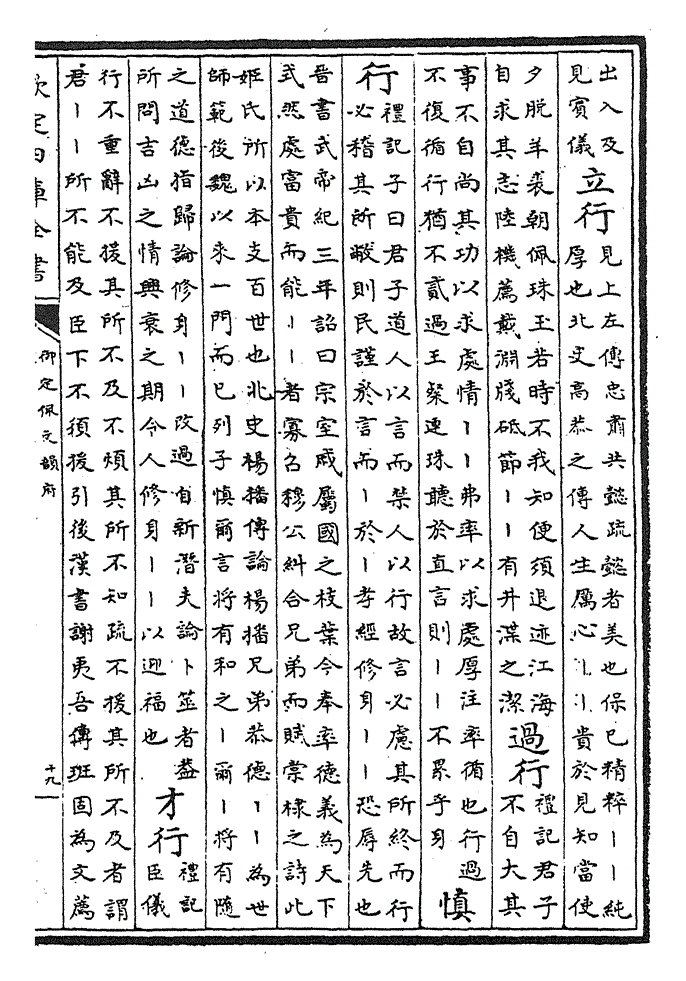 出入及
見賓儀
立行
見上左傳忠肅共懿疏懿者美也保已精粹丨丨純
厚也北史高恭之傳人生厲心丨丨貴於見知當使
夕脫羊裘朝佩珠玉若時不我知便須退迹江海
自求其志陸機薦戴淵牋砥節丨丨有井渫之潔
過行
禮記君子
不自大其
事不自尚其功以求處情丨丨弗率以求處厚注率循也行過
不復循行猶不貳過王粲連珠聽於直言則丨丨不累乎身
慎
行
禮記子曰君子道人以言而禁人以行故言必慮其所終而行
必稽其所敝則民謹於言而丨於丨孝經修身丨丨恐辱先也
晉書武帝紀三年詔曰宗室戚屬國之枝葉今奉率德義為天下
式然處富貴而能丨丨者寡召穆公糾合兄弟而賦棠棣之詩此
姬氏所以本支百世也北史楊播傳論楊播兄弟恭德丨丨為世
師範後魏以來一門而已列子慎爾言將有和之丨爾丨將有隨
之道德指歸論修身丨丨改過自新潛夫論卜筮者蓋
所問吉凶之情興衰之期令人修身丨丨以迎福也
才行
禮記
臣儀
行不重辭不援其所不及不煩其所不知疏不援其所不及者謂
君丨丨所不能及臣下不須援引後漢書謝夷吾傳班固為文薦
欽定四庫全書
御定佩文韻府
十九